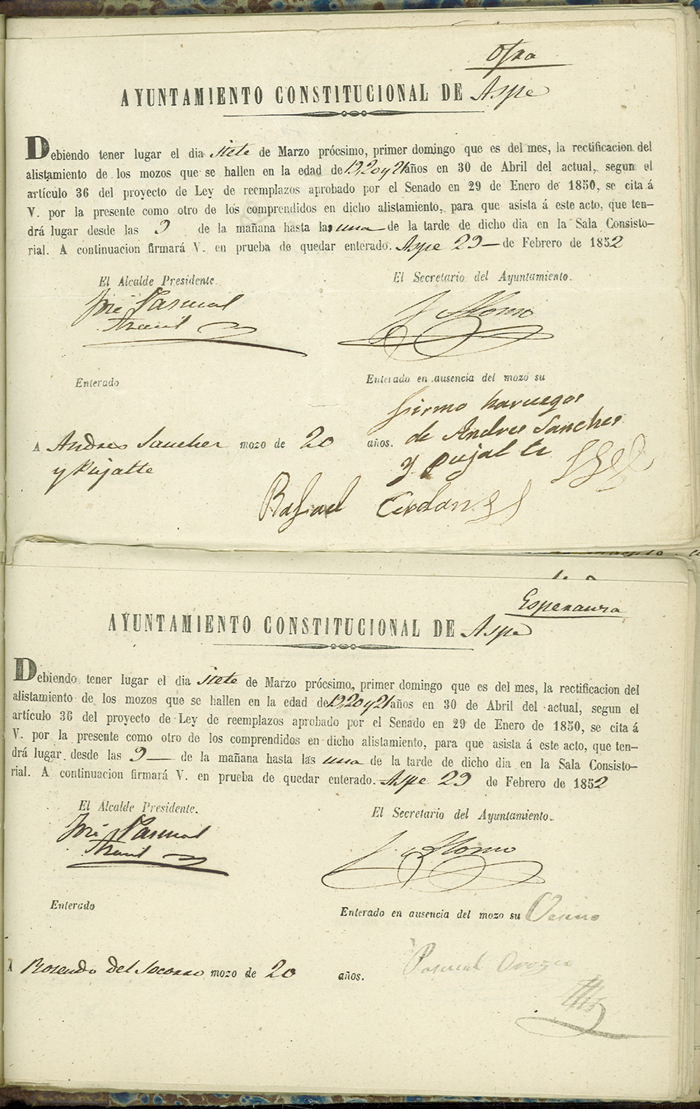 AYUNTAMIENTO CONSTITUCIONAL DE Aspe
Debiendo tener lugar el dia siete de Marzo prócsimo, primer domingo que es del mes, la rectificacion del
alistamiento de los mozos que se hallen en la edad de 19, 20 y 21 años en 30 de Abril del actual, segun el
artículo 36 del proyecto de Ley de reemplazos aprobado por el Senado en 29 de Enero de 1850, se cita á
V. por la presente como otro de los comprendidos en dicho alistamiento, para que asista á este acto, que ten-
drá lugar desde las 9 de la mañana hasta las una de la tarde de dicho dia en la Sala Consisto-
rial. A continuacion firmará V. en prueba de quedar enterado. Aspe 29 de Febrero de 1852
El Alcalde Presidente. El Secretario del Ayuntamiento.
José Pascual
Enterado Enterado en ausencia del mozo su
firmo haruegos
A Andres Sancher mozo de 20 años. de Andres Sanches
y Pujalte y Pujalte
Rafael Cerdan
Esperanza
AYUNTAMIENTO CONSTITUCIONAL DE Aspe
Debiendo tener lugar el dia siete de Marzo prócsimo, primer domingo que es del mes, la rectificacion del
alistamiento de los mozos que se hallen en la edad de 19, 20 y 21 años en 30 de Abril del actual, segun el
artículo 36 del proyecto de Ley de reemplazos aprobado por el Senado en 29 de Enero de 1850, se cita á
V. por la presente como otro de los comprendidos en dicho alistamiento, para que asista á este acto, que ten-
drá lugar desde las 9 de la mañana hasta las una de la tarde de dicho dia en la Sala Consisto-
rial. A continuacion firmará V. en prueba de quedar enterado. Aspe 29 de Febrero de 1852
El Alcalde Presidente. El Secretario del Ayuntamiento.
José Pascual
Enterado Enterado en ausencia del mozo su
A Rosendo del Socorro mozo de 20 años. Pascual Orozco